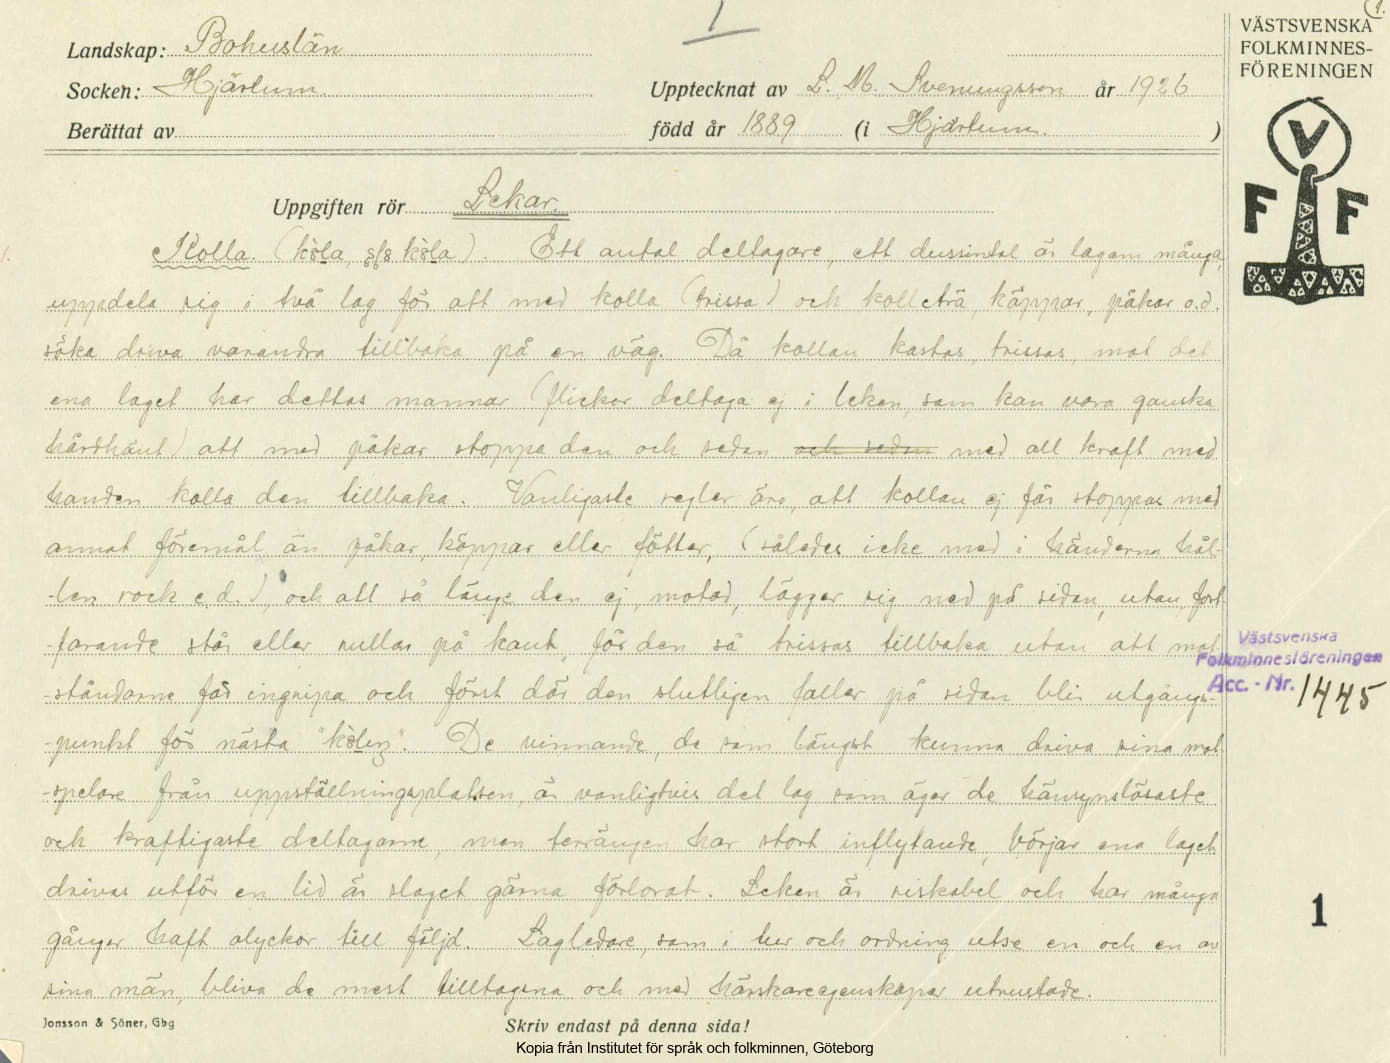 1
1.
Landskap: Bohuslän
Socken: Hjärtum.
Upptecknat av L. M. Svenungsson år 1926
Berättat av
född år 1889 (i Hjärtum. )
VÄSTSVENSKA
FOLKMINNES-
FÖRENINGEN
V
F F
Uppgiften rör Lekar.
Kolla. ( ). Ett antal deltagare, ett dussintal är lagom många,
uppdela sig i två lag för att med kolla (trissa) och kollträ, käppar, påkar o.d.
söka driva varandra tillbaka på en väg. Då kollan kastas, trissas, mot det
ena laget har dettas mannar (flickor deltaga ej i leken, som kan vara ganska
hårdhänt) att med påkar stoppa den och sedan och sedan med all kraft med
handen kolla den tillbaka. Vanligaste regler äro, att kollan ej får stoppas med
annat föremål än påkar, käppar eller fötter, (således icke med i händerna hål-
-len rock e.d.), och att så länge den ej, motad, lägger sig ned på sidan, utan fort-
-farande står eller rullar på kant, får den så trissas tillbaka utan att mot-
-ståndarne får ingripa och först där den slutligen faller på sidan blir utgångs-
-punkt för nästa " ". De vinnande, de som längst kunna driva sina mot-
-spelare från uppställningsplatsen, är vanligtvis det lag som äger de hänsynslösaste
och kraftigaste deltagarne, men terrängen har stort inflytande, börjar ena laget
drivas utför en lid är slaget gärna förlorat. Leken är riskabel och har många
gånger haft olyckor till följd. Lagledare, som i tur och ordning utse en och en av
sina män, bliva de mest tilltagsna och med härskareegenskaper utrustade.
Västsvenska
Folkminnesföreningen
Acc. - Nr. 1445
1
Jonsson & Söner, Gbg
Skriv endast på denna sida!
Kopia från Institutet för språk och folkminnen, Göteborg